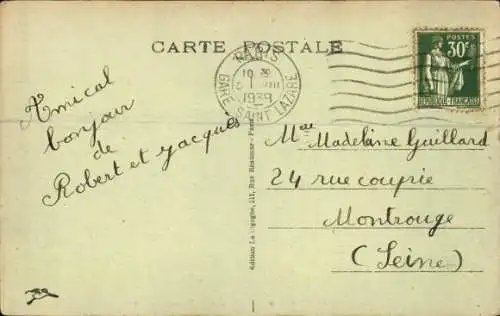 CARTE POSTALE
PARIS
1939
GARE SAINT LAZARE
POSTES
30c
REPUBLIQUE FRANÇAISE
Amical
bonjour
de
Robert et Jacques
Mme Madeleine Guillard
24 rue couprie
Montrouge
(Seine)
Edition La Cigogne, 211, Rue Paris